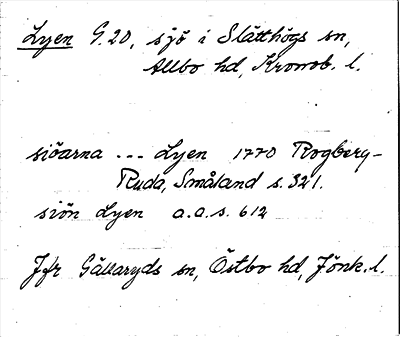 Lyen G.20, sjö i Slätthögs sn,
Allbo hd, Kronob. l.
siöarna ... Lyen 1770 Rogberg-
Ruda, Småland s. 321.
siön Lyen a.a.s. 612
Jfr Gällaryds sn, Östbo hd, Jönk. l.